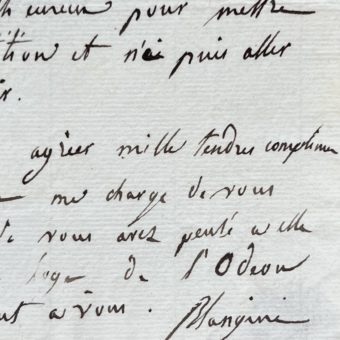 heureux pour mettre
ition et n'ai puis aller
ir.
agréer mille tendres complimen
me charge de vous
de vous avez pensé a elle
loge de l'Odeon
nt a vous. Blangini